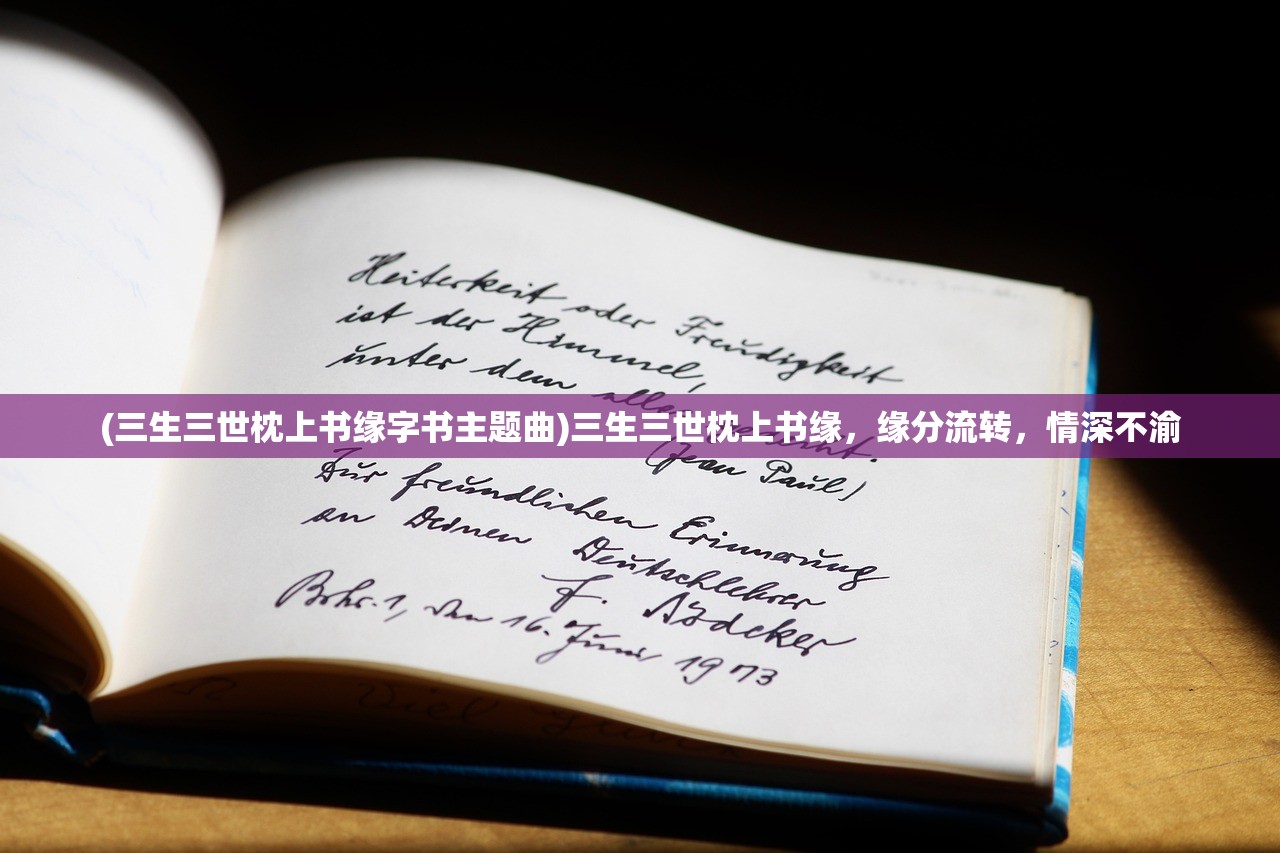 Heiterkeit oder Freudigkeit
ist der Himmel,
unter dem alles
(三生三世枕上书缘字书主题曲)三生三世枕上书缘，缘分流转，情深不渝
(Jean Paul)
Zur freundlichen Erinnerung
an Deinen Deutschlehrer
Bohr. 1, den 16. Juni 1973